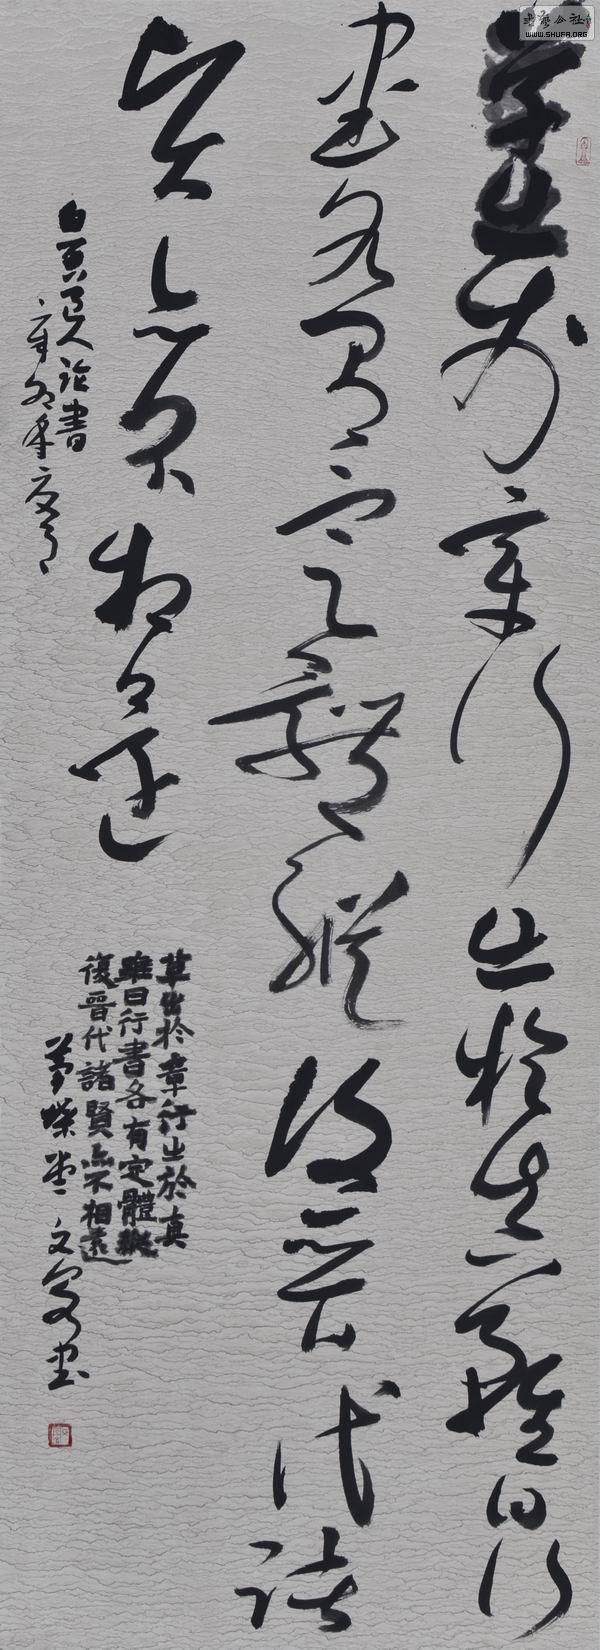 書藝公社
WWW.SHUFA.ORG
草出於章行出於真雖曰行
書各有定體縱復晉代諸
賢亦不相遠
白石道人論書
辛卯年夏月
草出於章行出於真
雖曰行書各有定體縱
復晉代諸賢亦不相遠
夢蝶堂文書